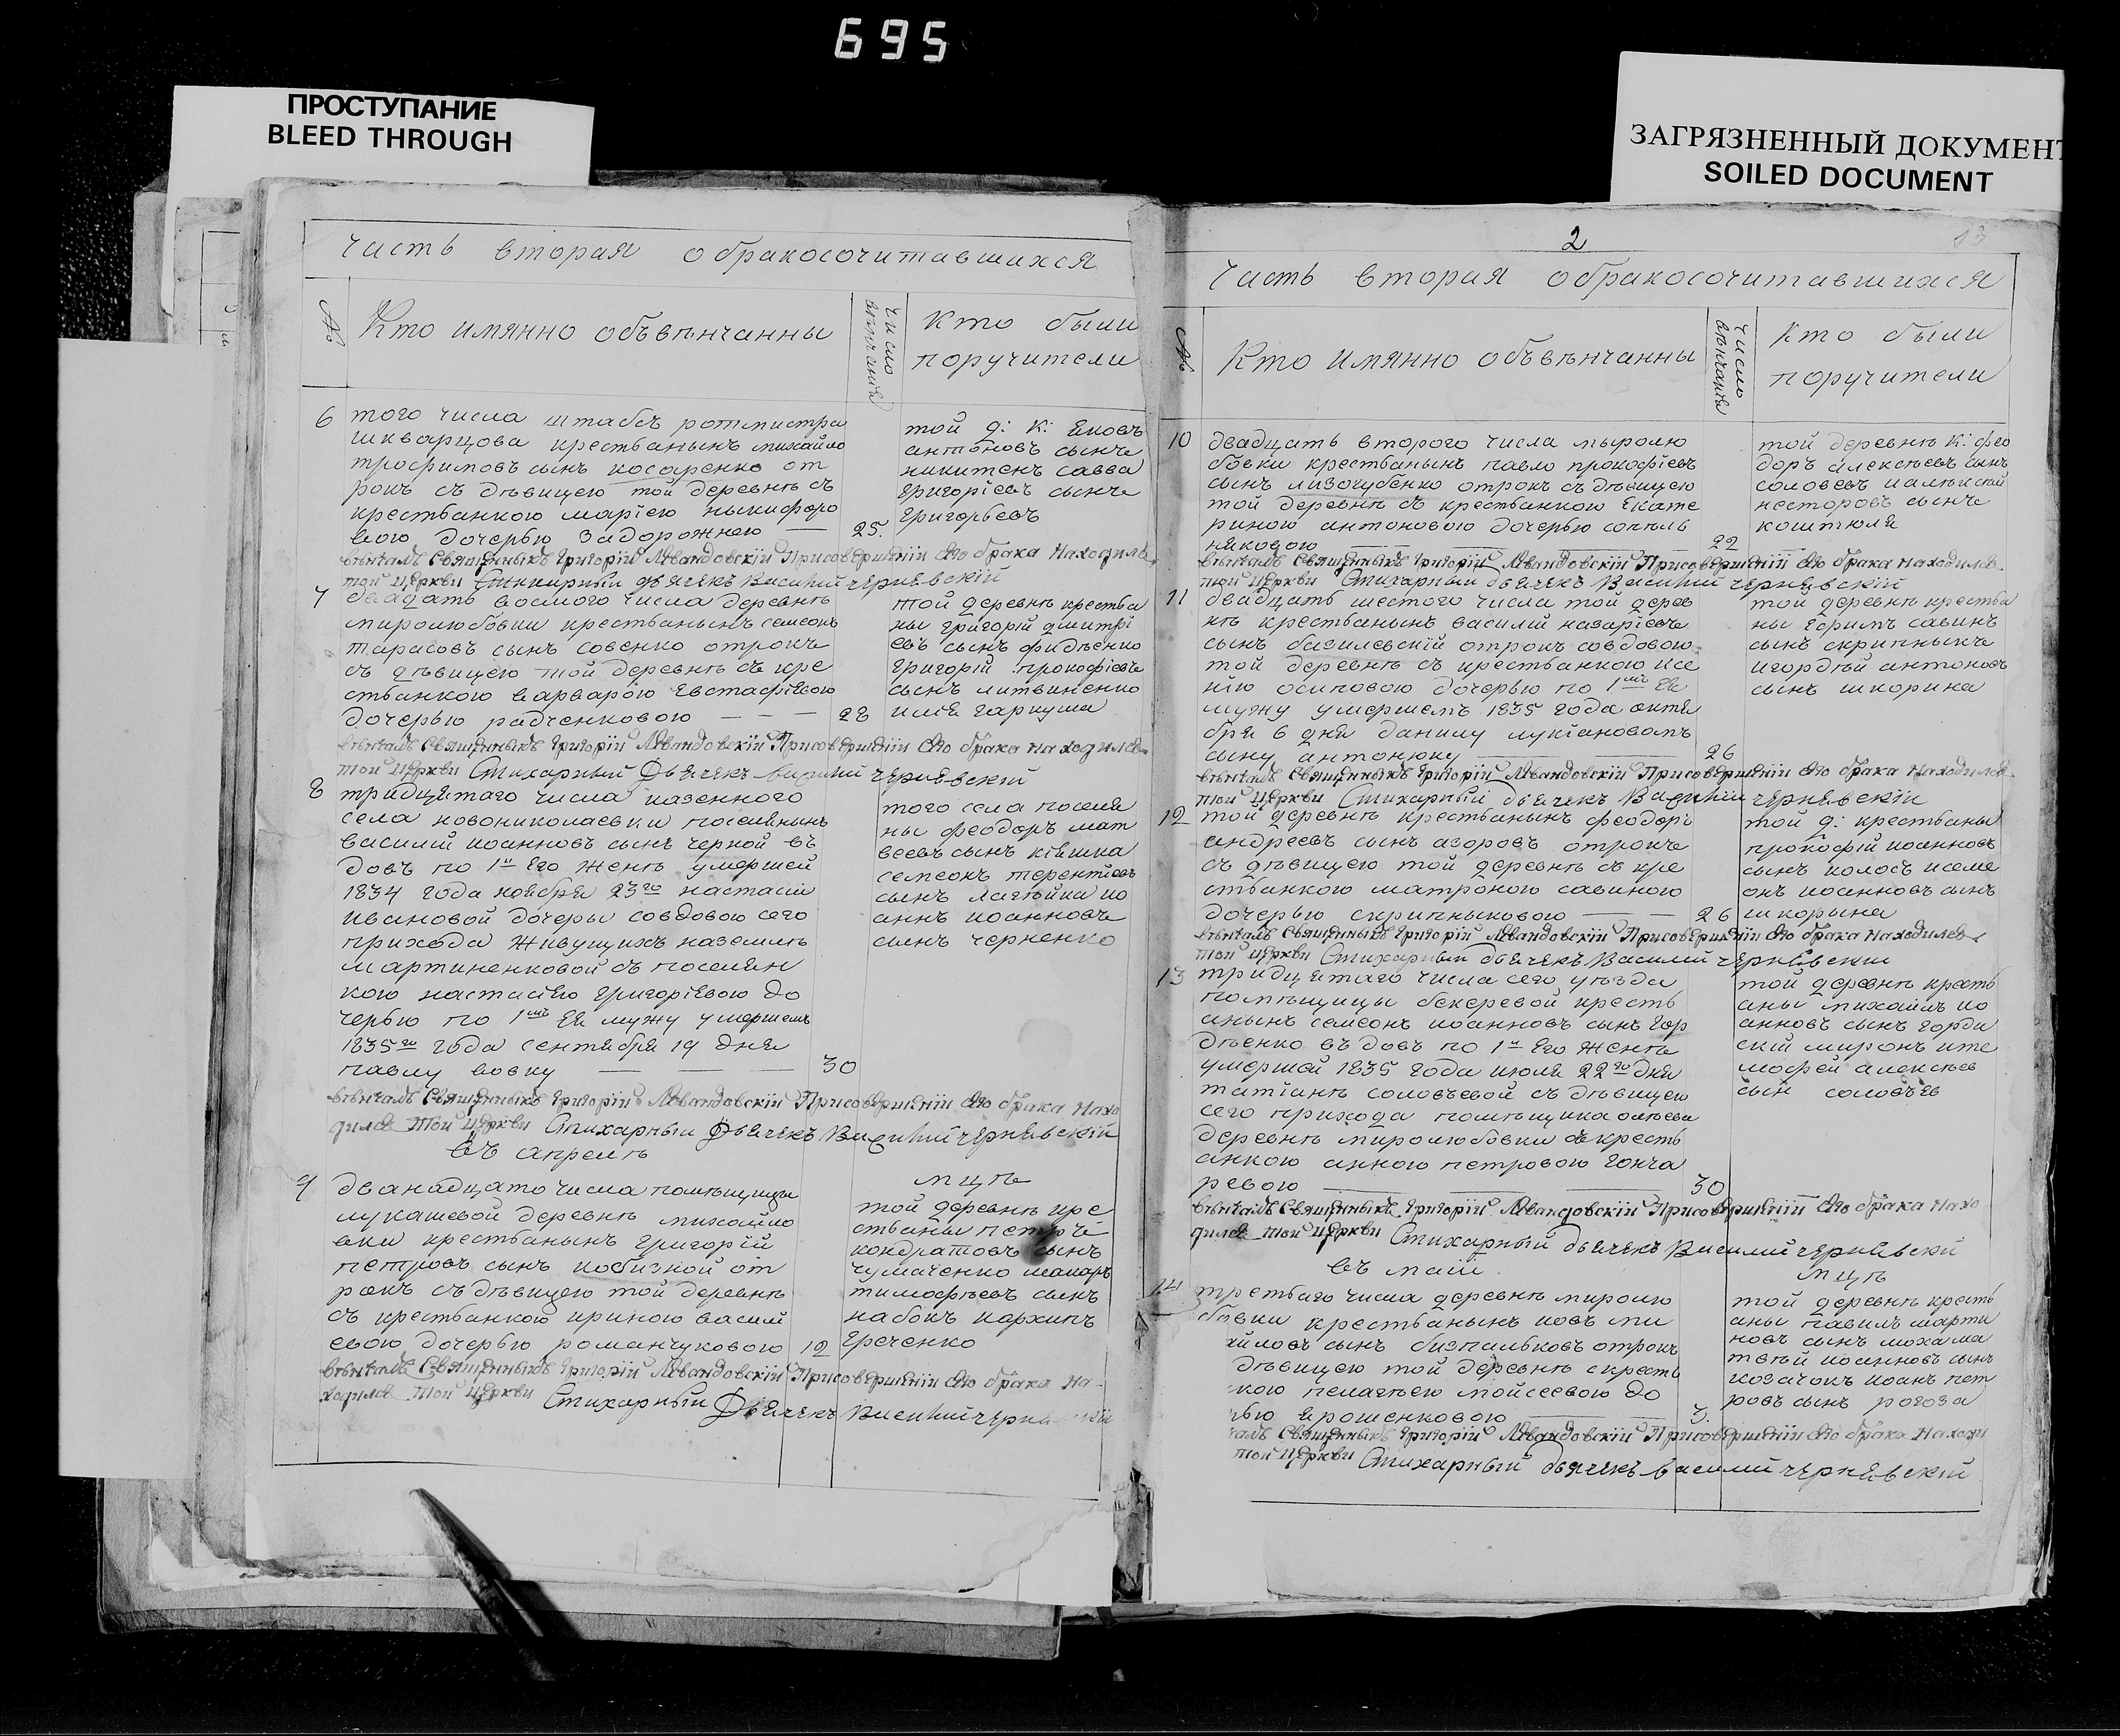 695
ПРОСТУПАНИЕ
BLEED THROUGH
ЗАГРЯЗНЕННЫЙ ДОКУМЕНТ
SOILED DOCUMENT
Часть вторая обракосочитавшихся
№
Кто имянно объвѣнчанны
Число вѣнчания
Кто были
поручители
6
того числа штабсъ ротмистра
шкварцова крестьянынъ михайло
трофимовъ сынъ косаренко от
рокъ съ дѣвицею той деревнѣ съ
крестьанкою маріею ныкифоро
вою дочерью Задорожнею
25.
той д: к: Яковъ
антоновъ сынъ
никитенъ савва
Григоріевъ сынъ
Григорьевъ
вѣнчалъ Священныкъ Григорій Левандовскій Присовершеніи Сего брака Находилъ
той Церкви Стихарный дьячекъ Василий чернѣвскій
7
двадцать восмого числа деревнѣ
миролюбовки крестьанынъ самсонъ
тарасовъ сынъ совенко отрокъ
съ дѣвицею той деревнѣ съ кре
стьанкою варварою Евстафіевою
дочерью радченковою
28
той деревнѣ крестьа
ны григорій дмитрі
евъ сынъ фидѣенко
григорій прокофіевъ
сынъ литвиненко
илія гаркуша
вѣнчалъ Священныкъ Григорій Левандовскій Присовершеніи Сего брака находился
той Церкви Стихарный Дьячекъ Василий чернѣвскій
8
тридцятаго числа казенного
села новониколаевки поселянынъ
василий иоанновъ сынъ черной въ
довъ по 1й Его женѣ умершей
1834 года ноября 23го настасіи
ивановой дочеры совдовою сего
прихода живущихъ наземлѣ
мартиненковой съ поселян
кою настасіею григоріевою до
черью по 1мъ Ея мужу умершемъ
1835го года сентября 19 дня
павлу вовку
30
того села поселя
ны феодоръ мат
веевъ сынъ кіяшка
семеонъ терентіевъ
сынъ лагойка ио
аннъ иоанновъ
сынъ черненко
вѣнчалъ Священныкъ Григорій Левандовскій Присовершеніи Сего брака Нахо
дился той Церкви Стихарный Дьячекъ Василий чернѣвскій
въ апрелѣ
мцѣ
9
дванадцато числа помѣщицы
лукашевой деревнѣ михайло
вки крестьанынъ григорій
петровъ сынъ кобизкой от
рокъ съ дѣвицею той деревнѣ
съ крестьанкою ириною васил
евою дочерью романчуковою
12
той деревнѣ кре
стьаны петръ
кондратовъ сынъ
чумаченко макаръ
тимофѣевъ сынъ
набокъ кархипъ
греченко
вѣнчалъ Священныкъ Григорій Левандовскій Присовершеніи Сего брака На
ходился той Церкви Стихарный Дьячекъ Василий
2
Часть вторая обракосочитавшихся
№
Кто имянно объвѣнчанны
Число вѣнчания
Кто были
поручители
10
двадцать второго числа мыролю
бовки крестьанынъ павло прокофіевъ
сынъ лизогубенко отрокъ съ дѣвицею
той деревнѣ съ крестьанкою Екате
риною антоновою дочерью сопѣль
няковою
22
той деревнѣ к: фео
доръ алексѣевъ сынъ
соловевъ
несторовъ сынъ
коштюля
вѣнчалъ Священныкъ Григорій Левандовскій Присовершеніи Сего брака находился
той Церкви Стихарный дьячекъ Василий чернѣвскій
11
двадцать шестого числа той дерев
нѣ крестьанынъ василий назаріевъ
сынъ базилевскій отрокъ совдовою
той деревнѣ съ крестьанкою ксе
нію осиповою дочерью по 1мъ Ея
мужу умершемъ 1835 года октя
бря 6 дня данилу лукіановомъ
сыну антонюку
26
той деревнѣ крестьа
ны Ефимъ савинъ
сынъ скрипныкъ
игордѣй антоновъ
сынъ шкорина
вѣнчалъ Священныкъ Григорій Левандовскій Присовершеніи Сего брака Находился
той Церкви Стихарный дьячекъ Василий чернѣвскій
12
той деревнѣ крестьанынъ феодоръ
андреевъ сынъ азоровъ отрокъ
съ дѣвицею той деревнѣ съ кре
стьанкою матроною савиною
дочерью скрипныковою
26
той д: крестьаны
прокофій иоанновъ
сынъ колосъ исеме
онъ иоанновъ сынъ
шкорына
вѣнчалъ Священныкъ Григорій Левандовскій Присовершеніи Сего брака Находился
той Церкви Стихарный дьячекъ Василий чернѣвскии
13
тридцятаго числа сего уѣзда
помѣщицы бекеревой кресть
анынъ самсонъ иоанновъ сынъ гор
дѣенко въдовъ по 1й Его женѣ
умершей 1835 года июля 22го дня
татіанѣ соловьевой съ дѣвицею
сего прихода помѣщика
деревнѣ миролюбовки съкресть
анкою анною петровою гонча
ревою
30
той деревнѣ кресть
аны михаилъ ио
анновъ сынъ горди
скій миронъ ите
мофей алексѣев
сын соловьев
вѣнчалъ Священныкъ Григорій Левандовскій Присовершеніи Сего брака Нахо
дился той Церкви Стихарный дьячекъ Василий чернѣвскй
въ маіи
мцѣ
14
третьаго числа деревнѣ миролю
бовки крестьанынъ ми
хйловъ сынъ отрокъ
дѣвицею той деревнѣ скресть
кою пелагѣею мойсеевою до
рью Ярошенковою
3.
той деревнѣ кресть
аны павилъ марти
новъ сынъ моха ма
твѣй иоанновъ сынъ
козачокъ иоанъ пет
ровъ сынъ рогоза
чалъ Священныкъ Григорій Левандовскій Присовершеніи Сего брака Находи
той Церкви Стихарный дьячекъ василий чернѣвскій